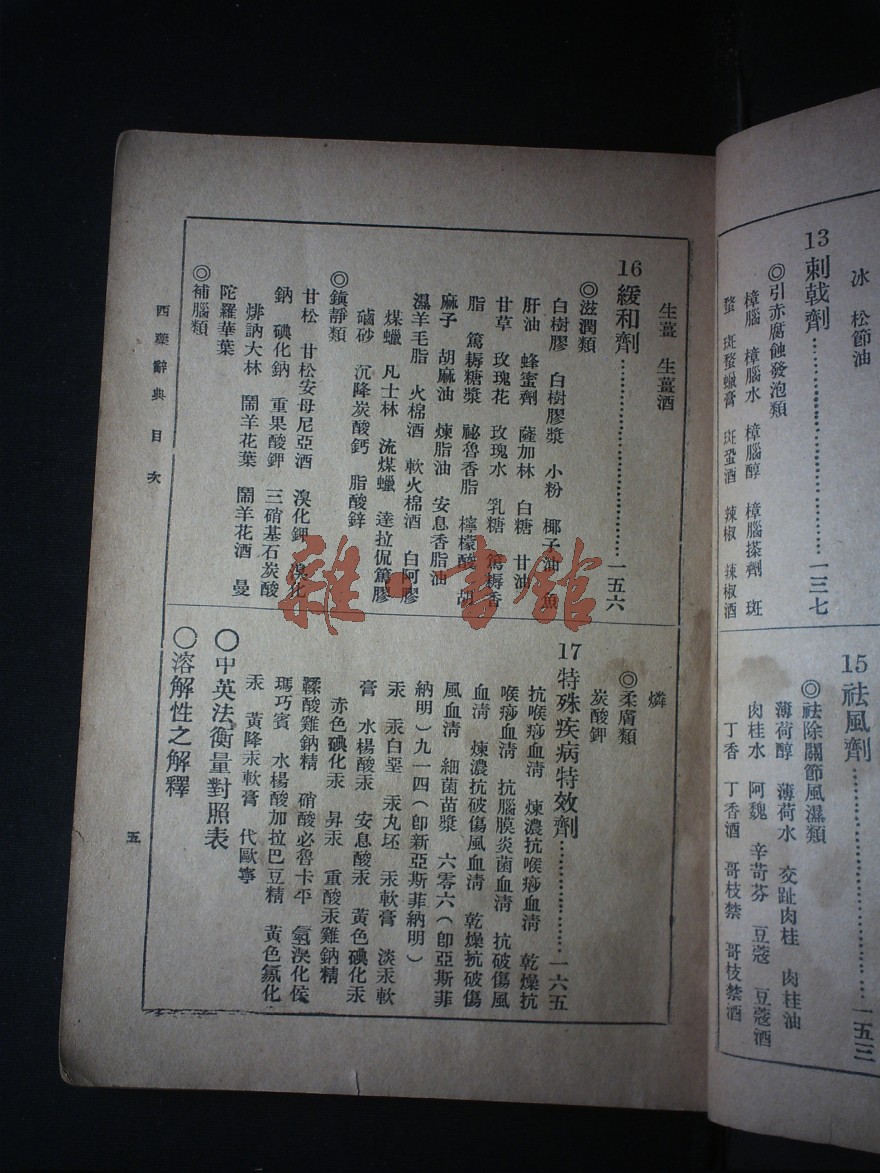 冰　松節油
13 刺戟劑……一三七
◎引赤腐蝕發泡類
樟腦　樟腦水　樟腦醇　樟腦搽劑　斑
蝥　斑蝥蠟膏　斑蝥酒　辣椒　辣椒酒
15 祛風劑……一五三
◎祛除關節風濕類
薄荷醇　薄荷水　交趾肉桂　肉桂油
肉桂水　阿魏　辛苛芬　豆蔻　豆蔻酒
丁香　丁香酒　哥枝禁　哥枝禁酒
生薑　生薑酒
16 緩和劑……一五六
◎滋潤類
白樹膠　白樹膠漿　小粉　椰子油　魚
肝油　蜂蜜劑　薩加林　白糖　甘油
甘草　玫瑰花　玫瑰水　乳糖　篤耨香
脂　篤耨糖漿　祕魯香脂　檸檬酸　胡
麻子　胡麻油　煉脂油　安息香脂油
濕羊毛脂　火棉酒　軟火棉酒　白阿膠
煤蠟　凡士林　流煤蠟　達拉侃篤膠
磠砂　沉降炭酸鈣　脂酸鋅
◎鎭靜類
甘松　甘松安母尼亞酒　溴化鉀　溴化
鈉　碘化鈉　重果酸鉀　三硝基石炭酸
煋訥大林　鬧羊花葉　鬧羊花酒　曼
陀羅華葉
◎補腦類
燐
◎柔膚類
炭酸鉀
17 特殊疾病特效劑……一六五
抗喉痧血清　煉濃抗喉痧血清　乾燥抗
喉痧血清　抗腦膜炎菌血清　抗破傷風
血清　煉濃抗破傷風血清　乾燥抗破傷
風血清　細菌苗漿　六零六(卽亞斯菲
納明)九一四(卽新亞斯菲納明)
汞　汞白堊　汞丸坯　汞軟膏　淡汞軟
膏　水楊酸汞　安息酸汞　黃色碘化汞
赤色碘化汞　昇汞　重酸汞雞鈉精
鞣酸雞鈉精　硝酸必魯卡平　氫溴化侯
瑪巧賓　水楊酸加拉巴豆精　黃色氯化
汞　黃降汞軟膏　代歐寧
〇中英法衡量對照表
〇溶解性之解釋
西藥辭典目次
五
雜·書館